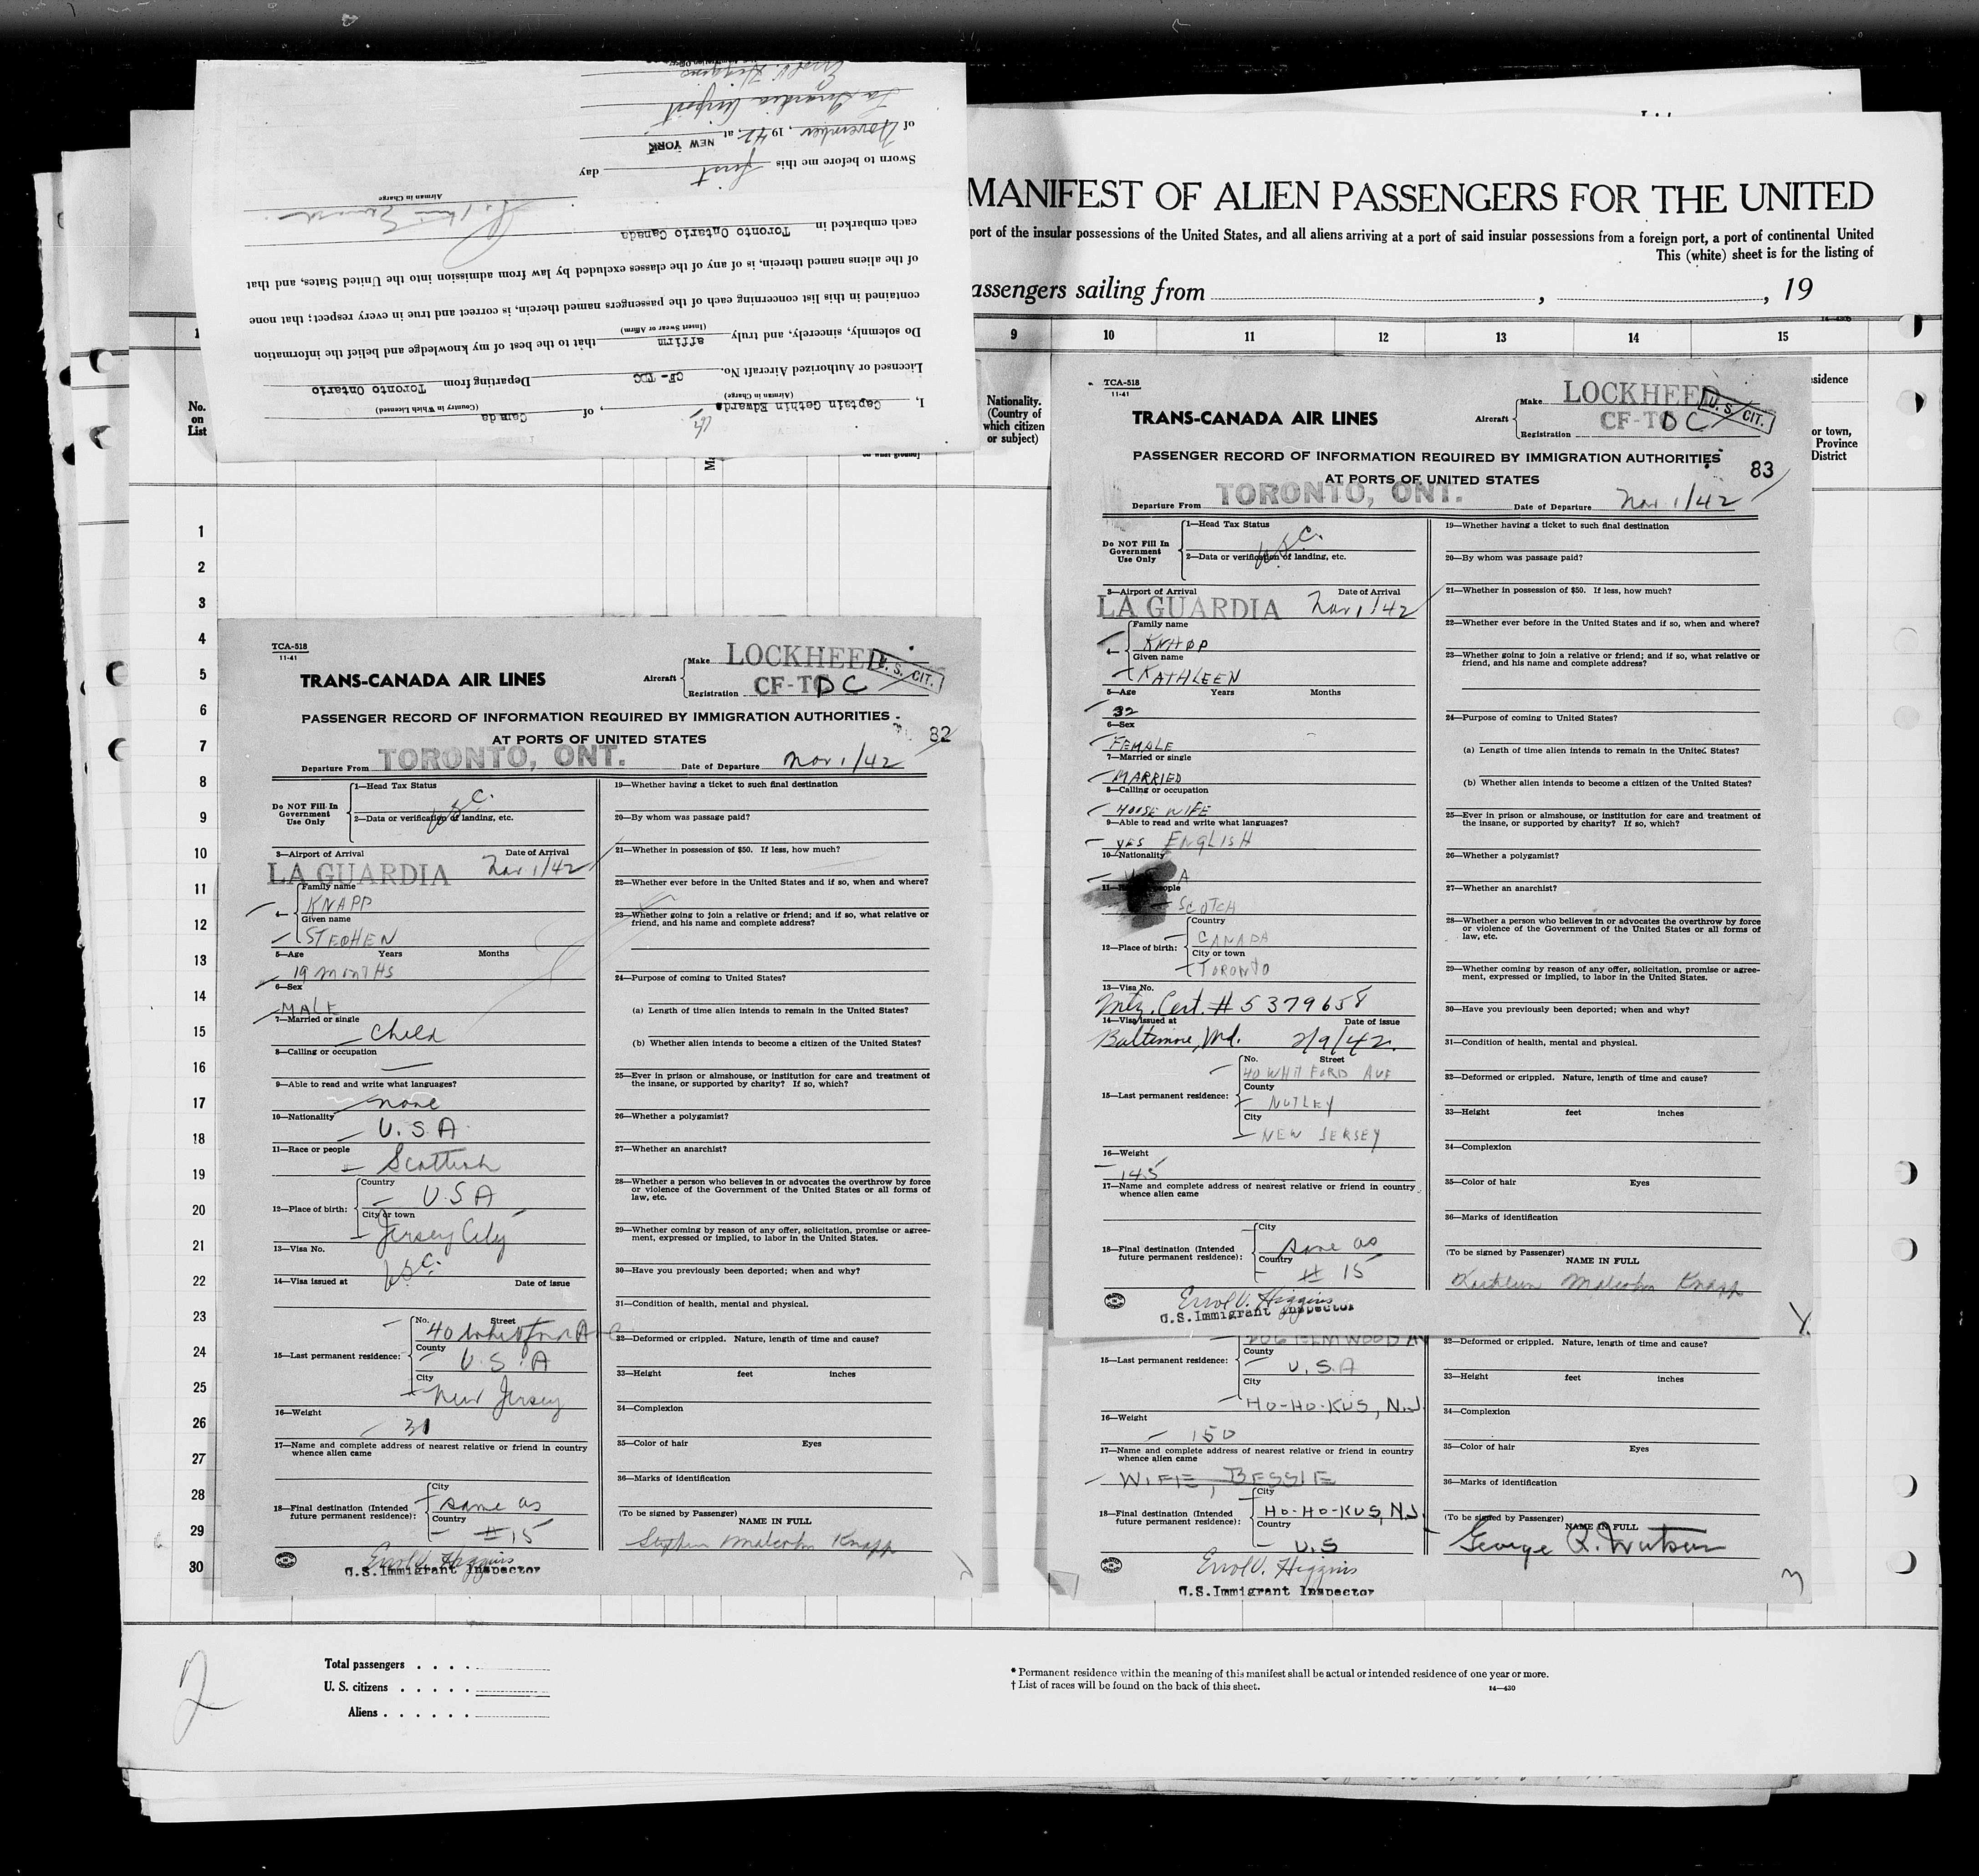 I, Captain Gethin Edwards, of Canada
(Airman in Charge) (Country in Which Licensed)
Licensed or Authorized Aircraft No. CF-TDC Departing from Toronto Ontario
Do solemnly, sincerely, and truly affirm that to the best of my knowledge and belief the information
(Insert Swear or Affirm)
contained in this list concerning each of the passengers named therein, is correct and true in every respect; that none
of the aliens named therein, is of any of the classes excluded by law from admission into the United States, and that
each embarked in Toronto Ontario Canada
Airman in Charge
Sworn to before me this first day
of November, 1942, at NEW YORK
La Guardia Airport
Errol V. Higgins
MANIFEST OF ALIEN PASSENGERS FOR THE UNITED
port of the insular possessions of the United States, and all aliens arriving at a port of said insular possessions from a foreign port, a port of continental United
This (white) sheet is for the listing of
assengers sailing from , , 19
9 10 11 12 13 14 15
No.
on
List
Nationality.
(Country of
which citizen
or subject)
sidence
or town,
Province
District
1
2
3
4
5
6
7
8
9
10
11
12
13
14
15
16
17
18
19
20
21
22
23
24
25
26
27
28
29
30
TCA-518
11-41
TRANS-CANADA AIR LINES
Aircraft
Make LOCKHEED
Registration CF-TDC
U. S. CIT.
PASSENGER RECORD OF INFORMATION REQUIRED BY IMMIGRATION AUTHORITIES
AT PORTS OF UNITED STATES
82
Departure From TORONTO, ONT. Date of Departure Nov 1/42
Do NOT Fill In
Government
Use Only
1—Head Tax Status
USC.
2—Data or verification of landing, etc.
3—Airport of Arrival Date of Arrival
LA GUARDIA Nov 1/42
4— Family name
KNAPP
Given name
STEPHEN
5—Age Years Months
19 MONTHS
6—Sex
MALE
7—Married or single
Child
8—Calling or occupation
—
9—Able to read and write what languages?
none
10—Nationality
U.S.A.
11—Race or people
Scottish
12—Place of birth: Country
U S A
City or town
Jersey City
13—Visa No.
USC.
14—Visa issued at Date of issue
15—Last permanent residence: No. Street
40 Whitford Ave
County
U.S.A
City
New Jersey
16—Weight
31
17—Name and complete address of nearest relative or friend in country
whence alien came
18—Final destination (Intended
future permanent residence): City
same as
Country
# 15
Errol V. Higgins
U.S.Immigrant Inspector
19—Whether having a ticket to such final destination
20—By whom was passage paid?
21—Whether in possession of $50. If less, how much?
22—Whether ever before in the United States and if so, when and where?
23—Whether going to join a relative or friend; and if so, what relative or
friend, and his name and complete address?
24—Purpose of coming to United States?
(a) Length of time alien intends to remain in the United States?
(b) Whether alien intends to become a citizen of the United States?
25—Ever in prison or almshouse, or institution for care and treatment of
the insane, or supported by charity? If so, which?
26—Whether a polygamist?
27—Whether an anarchist?
28—Whether a person who believes in or advocates the overthrow by force
or violence of the Government of the United States or all forms of
law, etc.
29—Whether coming by reason of any offer, solicitation, promise or agree-
ment, expressed or implied, to labor in the United States.
30—Have you previously been deported; when and why?
31—Condition of health, mental and physical.
32—Deformed or crippled. Nature, length of time and cause?
33—Height feet inches
34—Complexion
35—Color of hair Eyes
36—Marks of identification
(To be signed by Passenger)
NAME IN FULL
Stephen Malcolm Knapp
TCA-518
11-41
TRANS-CANADA AIR LINES
Aircraft
Make LOCKHEED
Registration CF-TDC
U. S. CIT.
PASSENGER RECORD OF INFORMATION REQUIRED BY IMMIGRATION AUTHORITIES
AT PORTS OF UNITED STATES
83
Departure From TORONTO, ONT. Date of Departure Nov 1/42
Do NOT Fill In
Government
Use Only
1—Head Tax Status
USC.
2—Data or verification of landing, etc.
3—Airport of Arrival Date of Arrival
LA GUARDIA Nov 1/42
4— Family name
KNAPP
Given name
KATHLEEN
5—Age Years Months
32
6—Sex
FEMALE
7—Married or single
MARRIED
8—Calling or occupation
HOUSE WIFE
9—Able to read and write what languages?
YES ENGLISH
10—Nationality
U S A
11—Race or people
SCOTCH
12—Place of birth: Country
CANADA
City or town
TORONTO
13—Visa No.
Ntz. Cert. # 5379658
14—Visa issued at Date of issue
Baltimore, Md. 2/9/42.
15—Last permanent residence: No. Street
40 WHITFORD AVE
County
NUTLEY
City
NEW JERSEY
16—Weight
145
17—Name and complete address of nearest relative or friend in country
whence alien came
18—Final destination (Intended
future permanent residence): City
same as
Country
# 15
Errol V. Higgins
U.S.Immigrant Inspector
19—Whether having a ticket to such final destination
20—By whom was passage paid?
21—Whether in possession of $50. If less, how much?
22—Whether ever before in the United States and if so, when and where?
23—Whether going to join a relative or friend; and if so, what relative or
friend, and his name and complete address?
24—Purpose of coming to United States?
(a) Length of time alien intends to remain in the United States?
(b) Whether alien intends to become a citizen of the United States?
25—Ever in prison or almshouse, or institution for care and treatment of
the insane, or supported by charity? If so, which?
26—Whether a polygamist?
27—Whether an anarchist?
28—Whether a person who believes in or advocates the overthrow by force
or violence of the Government of the United States or all forms of
law, etc.
29—Whether coming by reason of any offer, solicitation, promise or agree-
ment, expressed or implied, to labor in the United States.
30—Have you previously been deported; when and why?
31—Condition of health, mental and physical.
32—Deformed or crippled. Nature, length of time and cause?
33—Height feet inches
34—Complexion
35—Color of hair Eyes
36—Marks of identification
(To be signed by Passenger)
NAME IN FULL
Kathleen Malcolm Knapp
206 ELMWOOD AV
15—Last permanent residence: County
U.S.A
City
HO-HO-KUS, N.J.
16—Weight
150
17—Name and complete address of nearest relative or friend in country
whence alien came
WIFE, BESSIE
18—Final destination (Intended
future permanent residence): City
HO-HO-KUS, N.J.
Country
U.S
Errol V. Higgins
U.S.Immigrant Inspector
32—Deformed or crippled. Nature, length of time and cause?
33—Height feet inches
34—Complexion
35—Color of hair Eyes
36—Marks of identification
(To be signed by Passenger)
NAME IN FULL
George R. Watson
2
Total passengers . . . .
U. S. citizens . . . . .
Aliens . . . . . .
* Permanent residence within the meaning of this manifest shall be actual or intended residence of one year or more.
† List of races will be found on the back of this sheet.
14—430